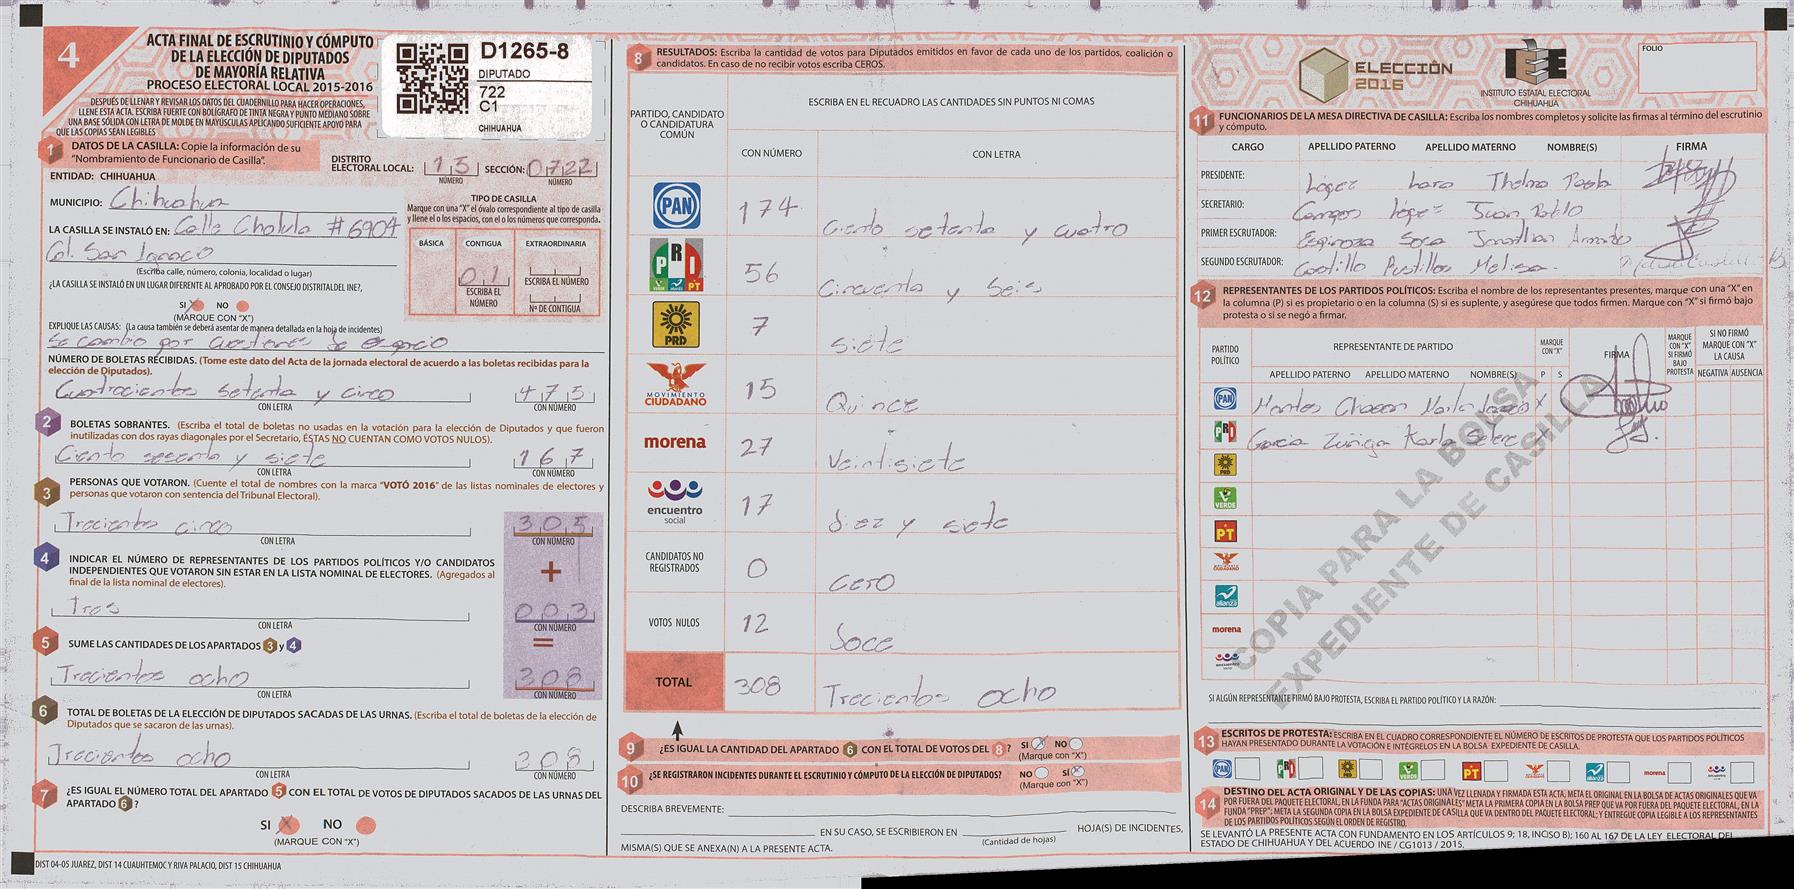 4
ACTA FINAL DE ESCRUTINIO Y CÓMPUTO
DE LA ELECCIÓN DE DIPUTADOS
DE MAYORÍA RELATIVA
PROCESO ELECTORAL LOCAL 2015-2016
DESPUÉS DE LLENAR Y REVISAR LOS DATOS DEL CUADERNILLO PARA HACER OPERACIONES,
LLENE ESTA ACTA. ESCRIBA FUERTE CON BOLÍGRAFO DE TINTA NEGRA Y PUNTO MEDIANO SOBRE
UNA BASE SÓLIDA CON LETRA DE MOLDE EN MAYÚSCULAS APLICANDO SUFICIENTE APOYO PARA
QUE LAS COPIAS SEAN LEGIBLES
D1265-8
DIPUTADO
722
C1
CHIHUAHUA
1 DATOS DE LA CASILLA: Copie la información de su
"Nombramiento de Funcionario de Casilla".
DISTRITO
ELECTORAL LOCAL: 15 SECCIÓN: 0722
NÚMERO NÚMERO
ENTIDAD: CHIHUAHUA
MUNICIPIO: Chihuahua
LA CASILLA SE INSTALÓ EN: Calle Cholula #6904
Col. San Ignacio
(Escriba calle, número, colonia, localidad o lugar)
¿LA CASILLA SE INSTALÓ EN UN LUGAR DIFERENTE AL APROBADO POR EL CONSEJO DISTRITAL DEL INE?,
SI X NO
(MARQUE CON "X")
EXPLIQUE LAS CAUSAS: (La causa también se deberá asentar de manera detallada en la hoja de incidentes)
Se cambio por cuestiones de espacio
TIPO DE CASILLA
Marque con una "X" el óvalo correspondiente al tipo de casilla
y llene el o los espacios, con el o los números que corresponda.
BÁSICA CONTIGUA EXTRAORDINARIA
01
ESCRIBA EL NÚMERO
ESCRIBA EL NÚMERO
Nº DE CONTIGUA
NÚMERO DE BOLETAS RECIBIDAS. (Tome este dato del Acta de la jornada electoral de acuerdo a las boletas recibidas para la
elección de Diputados).
Cuatrocientos setenta y cinco 475
CON LETRA CON NÚMERO
2 BOLETAS SOBRANTES. (Escriba el total de boletas no usadas en la votación para la elección de Diputados y que fueron
inutilizadas con dos rayas diagonales por el Secretario, ÉSTAS NO CUENTAN COMO VOTOS NULOS).
Ciento sesenta y siete 167
CON LETRA CON NÚMERO
3 PERSONAS QUE VOTARON. (Cuente el total de nombres con la marca "VOTÓ 2016" de las listas nominales de electores y
personas que votaron con sentencia del Tribunal Electoral).
Trecientos cinco 305
CON LETRA CON NÚMERO
4 INDICAR EL NÚMERO DE REPRESENTANTES DE LOS PARTIDOS POLÍTICOS Y/O CANDIDATOS
INDEPENDIENTES QUE VOTARON SIN ESTAR EN LA LISTA NOMINAL DE ELECTORES. (Agregados al
final de la lista nominal de electores).
+
Tres 003
CON LETRA CON NÚMERO
5 SUME LAS CANTIDADES DE LOS APARTADOS 3 y 4
=
Trecientos ocho 308
CON LETRA CON NÚMERO
6 TOTAL DE BOLETAS DE LA ELECCIÓN DE DIPUTADOS SACADAS DE LAS URNAS. (Escriba el total de boletas de la elección de
Diputados que se sacaron de las urnas).
Trecientos ocho 308
CON LETRA CON NÚMERO
7 ¿ES IGUAL EL NÚMERO TOTAL DEL APARTADO 5 CON EL TOTAL DE VOTOS DE DIPUTADOS SACADOS DE LAS URNAS DEL
APARTADO 6?
SI X NO
(MARQUE CON "X")
DIST 04-05 JUAREZ, DIST 14 CUAUHTEMOC Y RIVA PALACIO, DIST 15 CHIHUAHUA
8 RESULTADOS: Escriba la cantidad de votos para Diputados emitidos en favor de cada uno de los partidos, coalición o
candidatos. En caso de no recibir votos escriba CEROS.
PARTIDO, CANDIDATO
O CANDIDATURA
COMÚN
ESCRIBA EN EL RECUADRO LAS CANTIDADES SIN PUNTOS NI COMAS
CON NÚMERO CON LETRA
PAN 174 Ciento setenta y cuatro
PRI VERDE alianza PT 56 Cincuenta y Seis
PRD 7 siete
MOVIMIENTO CIUDADANO 15 Quince
morena 27 Veintisiete
encuentro social 17 diez y siete
CANDIDATOS NO REGISTRADOS 0 cero
VOTOS NULOS 12 Doce
TOTAL 308 Trecientos ocho
9 ¿ES IGUAL LA CANTIDAD DEL APARTADO 6 CON EL TOTAL DE VOTOS DEL 8? SI X NO
(Marque con "X")
10 ¿SE REGISTRARON INCIDENTES DURANTE EL ESCRUTINIO Y CÓMPUTO DE LA ELECCIÓN DE DIPUTADOS? NO SÍ X
(Marque con "X")
DESCRIBA BREVEMENTE:
EN SU CASO, SE ESCRIBIERON EN HOJA(S) DE INCIDENTES,
(Cantidad de hojas)
MISMA(S) QUE SE ANEXA(N) A LA PRESENTE ACTA.
ELECCIÓN
2016
IEE
INSTITUTO ESTATAL ELECTORAL
CHIHUAHUA
FOLIO
11 FUNCIONARIOS DE LA MESA DIRECTIVA DE CASILLA: Escriba los nombres completos y solicite las firmas al término del escrutinio
y cómputo.
CARGO APELLIDO PATERNO APELLIDO MATERNO NOMBRE(S) FIRMA
PRESIDENTE: López Lara Thelma Paola
SECRETARIO: Campos López Juan Pablo
PRIMER ESCRUTADOR: Espinoza Sosa Jonathan Armando
SEGUNDO ESCRUTADOR: Castillo Pustillos Melissa
12 REPRESENTANTES DE LOS PARTIDOS POLÍTICOS: Escriba el nombre de los representantes presentes, marque con una "X" en
la columna (P) si es propietario o en la columna (S) si es suplente, y asegúrese que todos firmen. Marque con "X" si firmó bajo
protesta o si se negó a firmar.
PARTIDO POLÍTICO
REPRESENTANTE DE PARTIDO
APELLIDO PATERNO APELLIDO MATERNO NOMBRE(S)
MARQUE CON "X"
P S
FIRMA
MARQUE CON "X" SI FIRMÓ BAJO PROTESTA
SI NO FIRMÓ MARQUE CON "X" LA CAUSA
NEGATIVA AUSENCIA
PAN Montes Chacon X
PRI García Zúñiga Karla Selene X
PRD
VERDE
PT
alianza
morena
COPIA PARA LA BOLSA
EXPEDIENTE DE CASILLA
SI ALGÚN REPRESENTANTE FIRMÓ BAJO PROTESTA, ESCRIBA EL PARTIDO POLÍTICO Y LA RAZÓN:
13 ESCRITOS DE PROTESTA: ESCRIBA EN EL CUADRO CORRESPONDIENTE EL NÚMERO DE ESCRITOS DE PROTESTA QUE LOS PARTIDOS POLÍTICOS
HAYAN PRESENTADO DURANTE LA VOTACIÓN E INTÉGRELOS EN LA BOLSA EXPEDIENTE DE CASILLA.
PAN PRI PRD VERDE PT alianza morena
14 DESTINO DEL ACTA ORIGINAL Y DE LAS COPIAS: UNA VEZ LLENADA Y FIRMADA ESTA ACTA, META EL ORIGINAL EN LA BOLSA DE ACTAS ORIGINALES QUE VA
POR FUERA DEL PAQUETE ELECTORAL, EN LA FUNDA PARA "ACTAS ORIGINALES" META LA PRIMERA COPIA EN LA BOLSA PREP QUE VA POR FUERA DEL PAQUETE ELECTORAL, EN LA
FUNDA "PREP"; META LA SEGUNDA COPIA EN LA BOLSA EXPEDIENTE DE CASILLA QUE VA DENTRO DEL PAQUETE ELECTORAL; Y ENTREGUE COPIA LEGIBLE A LOS REPRESENTANTES
DE LOS PARTIDOS POLÍTICOS SEGÚN EL ORDEN DE REGISTRO.
SE LEVANTÓ LA PRESENTE ACTA CON FUNDAMENTO EN LOS ARTÍCULOS 9; 18, INCISO B); 160 AL 167 DE LA LEY ELECTORAL DEL
ESTADO DE CHIHUAHUA Y DEL ACUERDO INE / CG1013 / 2015.